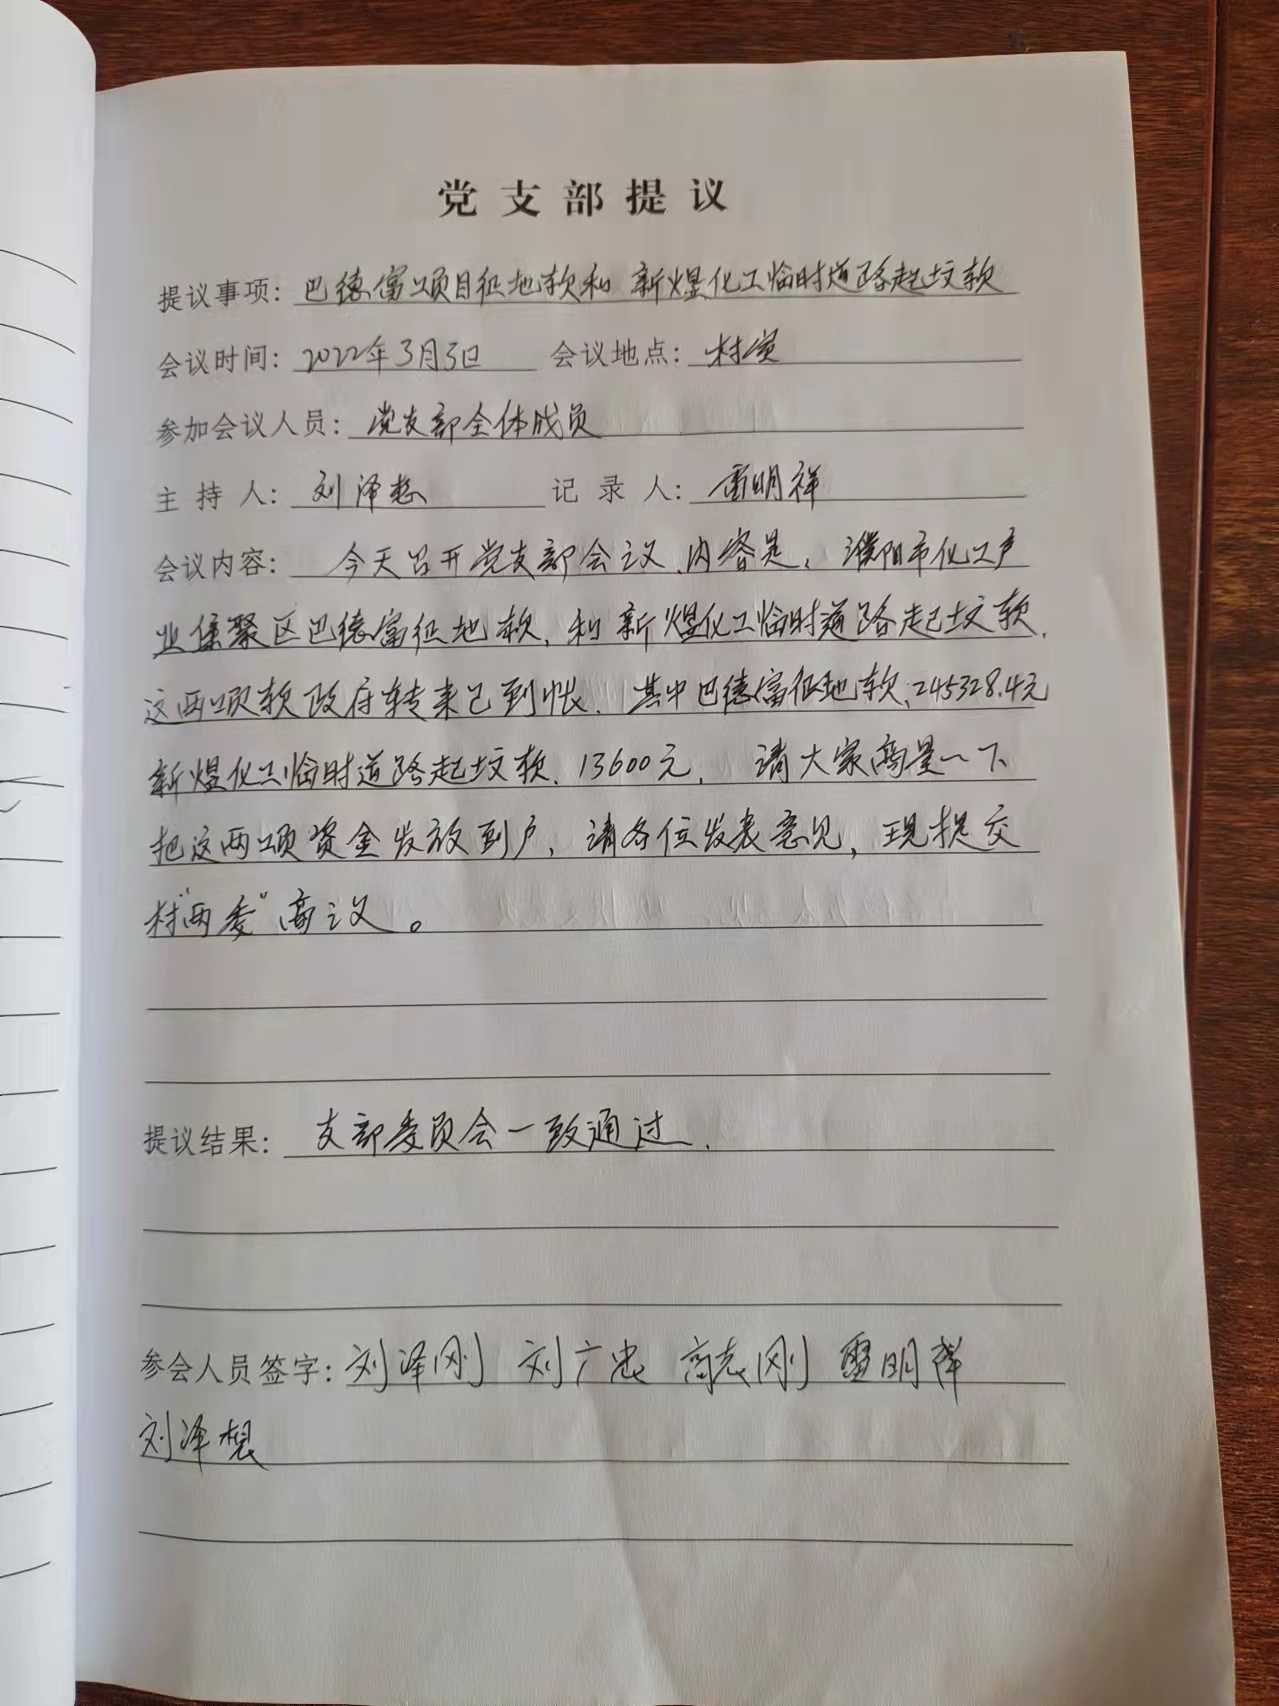 党支部提议
提议事项：巴德富项目征地款和新煜化工临时道路起坟款
会议时间：2022年3月3日 会议地点：村室
参加会议人员：党支部全体成员
主持人：刘泽想 记录人：雷明祥
会议内容：今天召开党支部会议，内容是：濮阳市化工产
业集聚区巴德富征地款，和新煜化工临时道路起坟款，
这两项款政府转来已到帐．其中巴德富征地款，245328.4元
新煜化工临时道路起坟款，13600元，请大家商量一下
把这两项资金发放到户，请各位发表意见，现提交
村“两委”商议。
提议结果：支部委员会一致通过．
参会人员签字：刘泽刚 刘广忠 高志刚 雷明祥
刘泽想